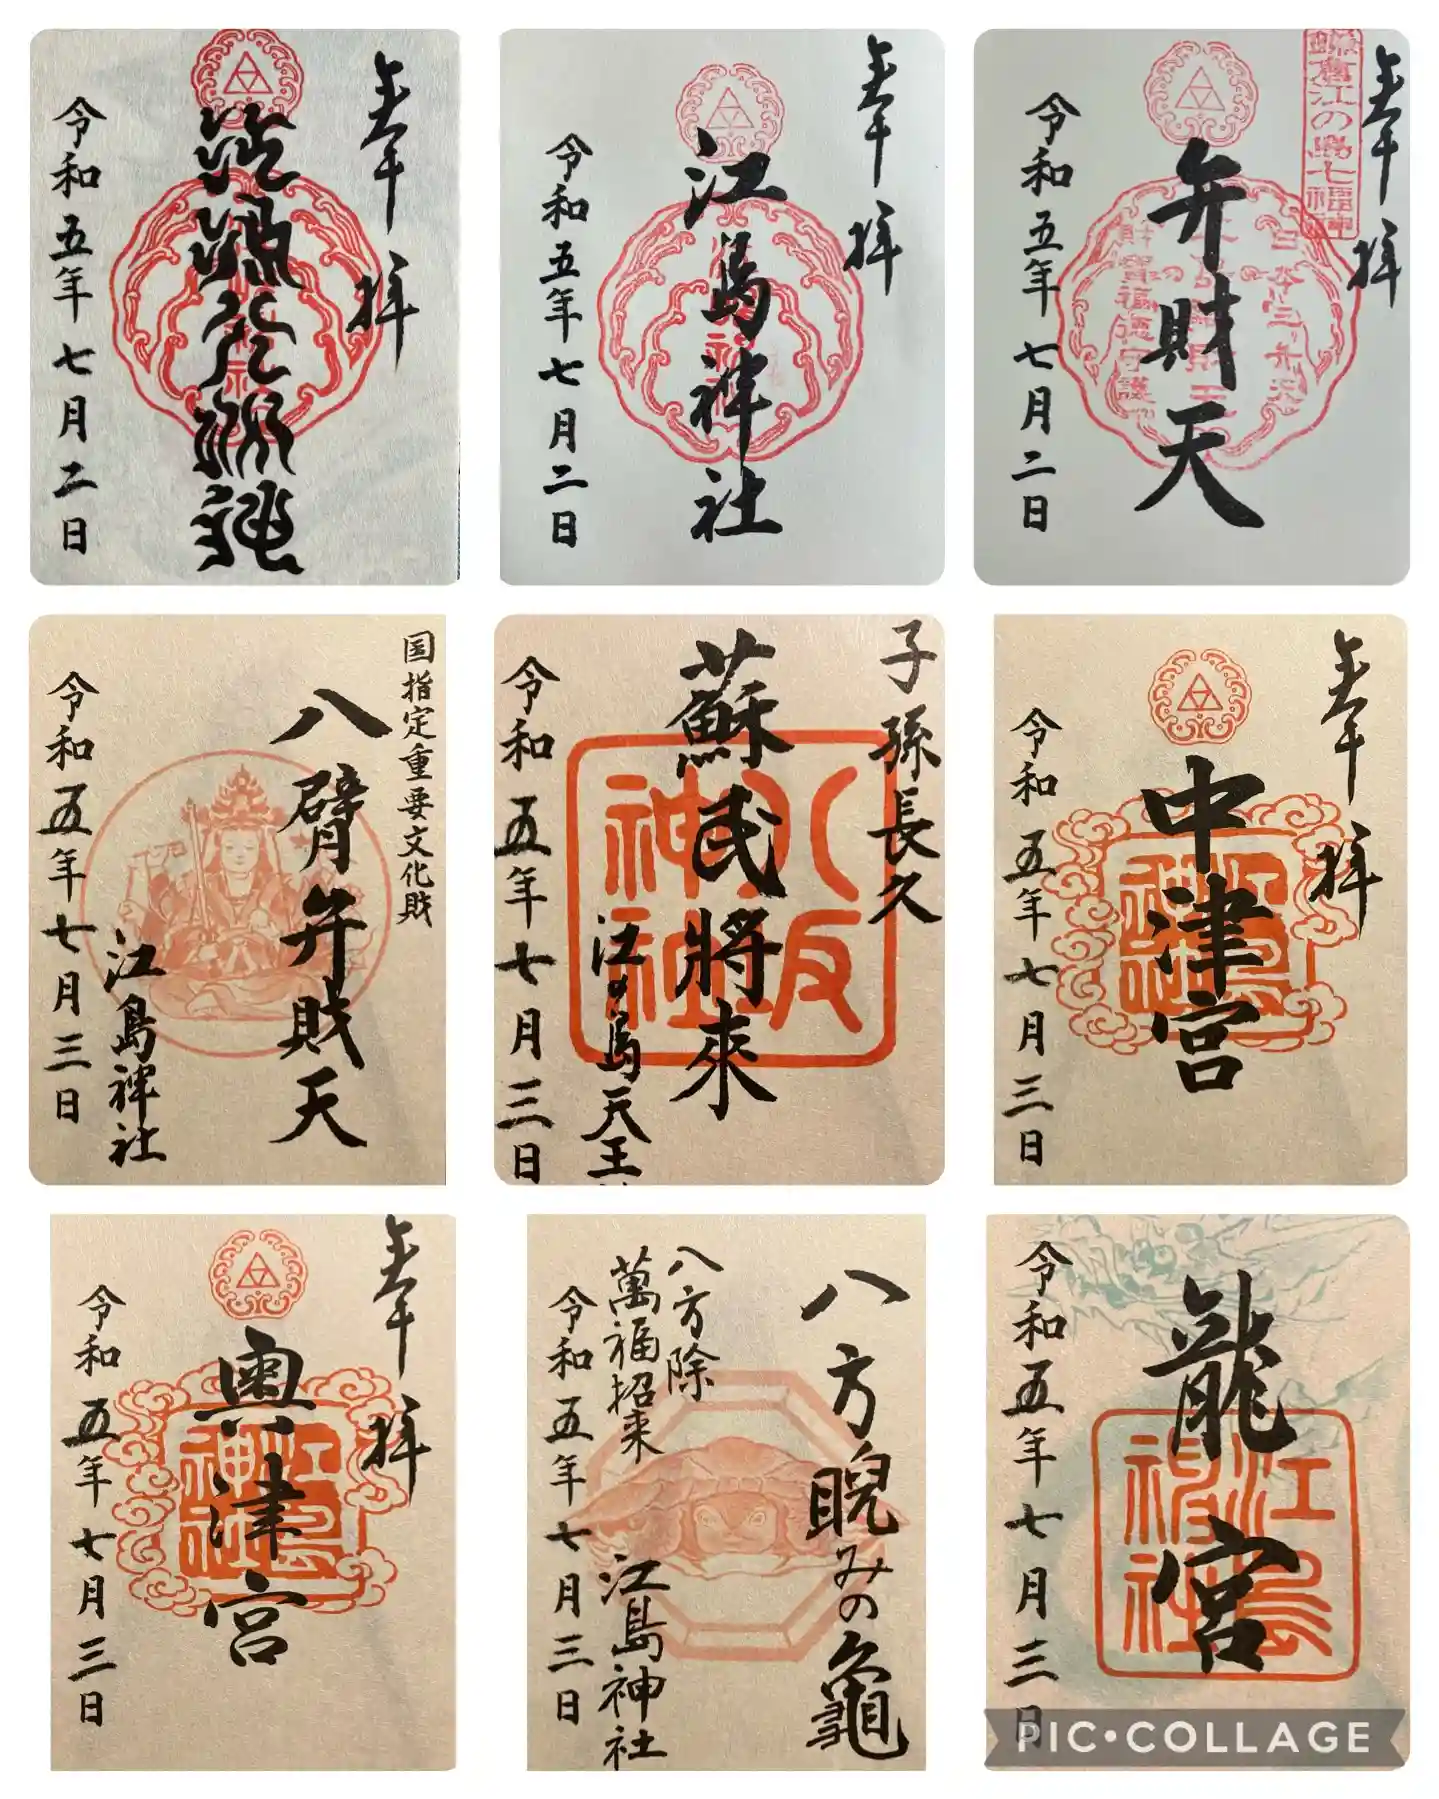 奉拝
令和五年七月二日
奉拝
江島神社
令和五年七月二日
奉拝
鎌倉江の島七福神
弁財天
令和五年七月二日
国指定重要文化財
八臂弁財天
江島神社
令和五年七月三日
子孫長久
蘇民將來
八坂神社
江の島天王
令和五年七月三日
奉拝
中津宮
江島神社
令和五年七月三日
奉拝
奥津宮
江島神社
令和五年七月三日
八方睨みの龜
八方除
萬福招来
江島神社
令和五年七月三日
龍宮
江島神社
令和五年七月三日
PIC•COLLAGE